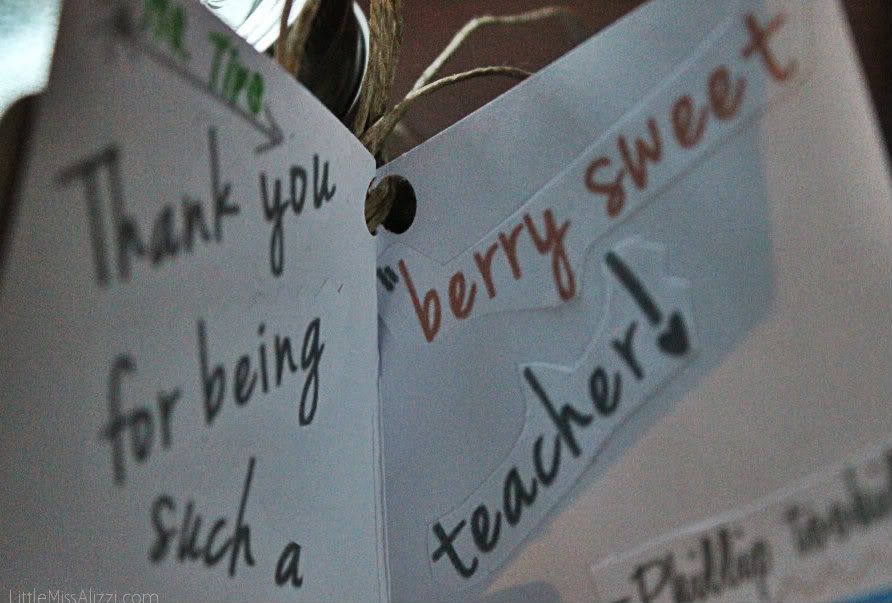 Thank you
for being
such a
"berry sweet
teacher!
LittleMissAlizzi.com